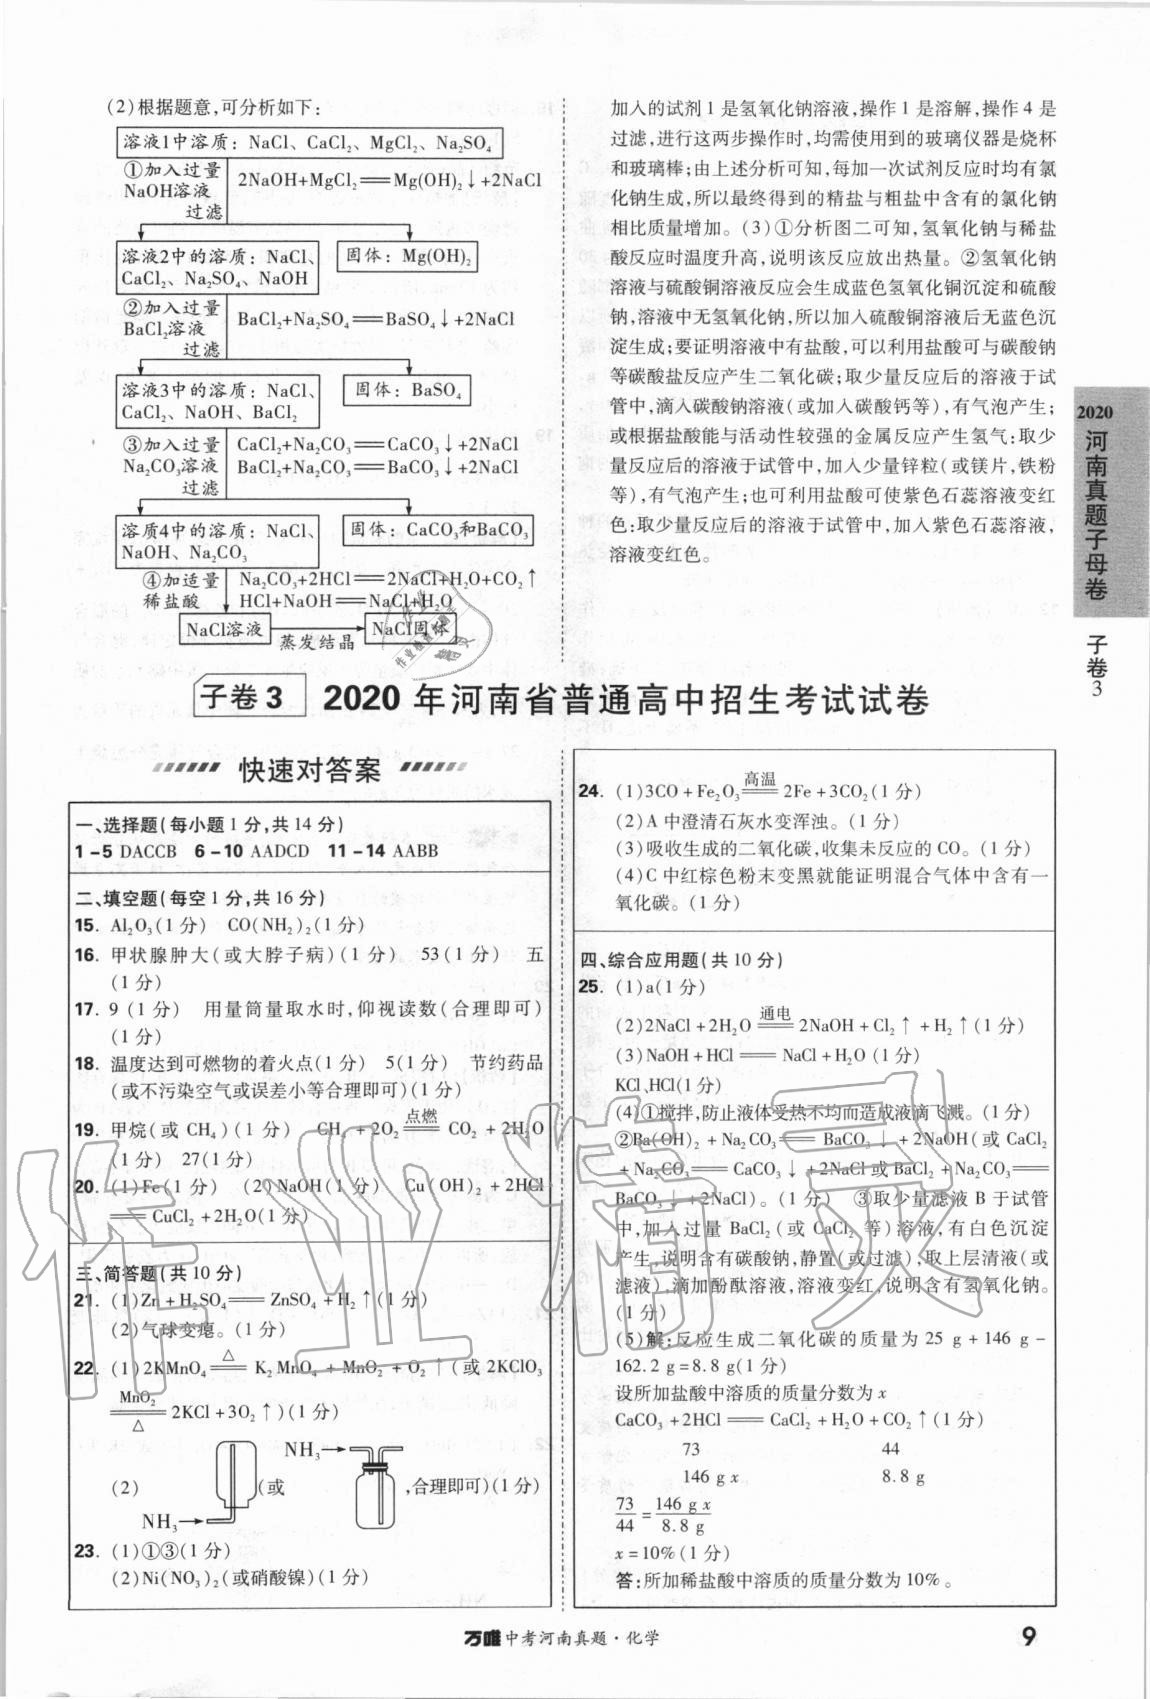 (2)根据题意,可分析如下:
溶液1中溶质：NaCl、CaCl₂、MgCl₂、Na₂SO₄
①加入过量
NaOH溶液
过滤
2NaOH+MgCl₂══Mg(OH)₂↓+2NaCl
溶液2中的溶质：NaCl、
CaCl₂、Na₂SO₄、NaOH
固体：Mg(OH)₂
②加入过量
BaCl₂溶液
过滤
BaCl₂+Na₂SO₄══BaSO₄↓+2NaCl
溶液3中的溶质：NaCl、
CaCl₂、NaOH、BaCl₂
固体：BaSO₄
③加入过量
Na₂CO₃溶液
过滤
CaCl₂+Na₂CO₃══CaCO₃↓+2NaCl
BaCl₂+Na₂CO₃══BaCO₃↓+2NaCl
溶质4中的溶质：NaCl、
NaOH、Na₂CO₃
固体：CaCO₃和BaCO₃
④加适量
稀盐酸
Na₂CO₃+2HCl══2NaCl+H₂O+CO₂↑
HCl+NaOH══NaCl+H₂O
NaCl溶液
蒸发结晶
NaCl固体
加入的试剂1是氢氧化钠溶液,操作1是溶解,操作4是
过滤,进行这两步操作时,均需使用到的玻璃仪器是烧杯
和玻璃棒;由上述分析可知,每加一次试剂反应时均有氯
化钠生成,所以最终得到的精盐与粗盐中含有的氯化钠
相比质量增加。(3)①分析图二可知,氢氧化钠与稀盐
酸反应时温度升高,说明该反应放出热量。②氢氧化钠
溶液与硫酸铜溶液反应会生成蓝色氢氧化铜沉淀和硫酸
钠,溶液中无氢氧化钠,所以加入硫酸铜溶液后无蓝色沉
淀生成;要证明溶液中有盐酸,可以利用盐酸可与碳酸钠
等碳酸盐反应产生二氧化碳;取少量反应后的溶液于试
管中,滴入碳酸钠溶液(或加入碳酸钙等),有气泡产生;
或根据盐酸能与活动性较强的金属反应产生氢气:取少
量反应后的溶液于试管中,加入少量锌粒(或镁片,铁粉
等),有气泡产生;也可利用盐酸可使紫色石蕊溶液变红
色:取少量反应后的溶液于试管中,加入紫色石蕊溶液,
溶液变红色。
2020
河南真题子母卷
子卷3
子卷3 2020年河南省普通高中招生考试试卷
快速对答案
一、选择题(每小题1分,共14分)
1-5 DACCB 6-10 AADCD 11-14 AABB
二、填空题(每空1分,共16分)
15. Al₂O₃(1分) CO(NH₂)₂(1分)
16. 甲状腺肿大(或大脖子病)(1分) 53(1分) 五
(1分)
17. 9(1分) 用量筒量取水时,仰视读数(合理即可)
(1分)
18. 温度达到可燃物的着火点(1分) 5(1分) 节约药品
(或不污染空气或误差小等合理即可)(1分)
19. 甲烷(或CH₄)(1分) CH₄+2O₂ ══点燃 CO₂+2H₂O
(1分) 27(1分)
20. (1)Fe(1分) (2)NaOH(1分) Cu(OH)₂+2HCl
══CuCl₂+2H₂O(1分)
三、简答题(共10分)
21. (1)Zn+H₂SO₄══ZnSO₄+H₂↑(1分)
(2)气球变瘪。(1分)
22. (1)2KMnO₄ ══△ K₂MnO₄+MnO₂+O₂↑(或2KClO₃
MnO₂
══ 2KCl+3O₂↑)(1分)
△
(2) NH₃→ (或 NH₃→ ,合理即可)(1分)
23. (1)①③(1分)
(2)Ni(NO₃)₂(或硝酸镍)(1分)
24. (1)3CO+Fe₂O₃ ══高温 2Fe+3CO₂(1分)
(2)A中澄清石灰水变浑浊。(1分)
(3)吸收生成的二氧化碳,收集未反应的CO。(1分)
(4)C中红棕色粉末变黑就能证明混合气体中含有一
氧化碳。(1分)
四、综合应用题(共10分)
25. (1)a(1分)
(2)2NaCl+2H₂O ══通电 2NaOH+Cl₂↑+H₂↑(1分)
(3)NaOH+HCl══NaCl+H₂O(1分)
KCl、HCl(1分)
(4)①搅拌,防止液体受热不均而造成液滴飞溅。(1分)
②Ba(OH)₂+Na₂CO₃══BaCO₃↓+2NaOH(或CaCl₂
+Na₂CO₃══CaCO₃↓+2NaCl或BaCl₂+Na₂CO₃══
BaCO₃↓+2NaCl)。(1分) ③取少量滤液B于试管
中,加入过量BaCl₂(或CaCl₂等)溶液,有白色沉淀
产生,说明含有碳酸钠,静置(或过滤),取上层清液(或
滤液),滴加酚酞溶液,溶液变红,说明含有氢氧化钠。
(1分)
(5)解:反应生成二氧化碳的质量为25 g+146 g-
162.2 g=8.8 g(1分)
设所加盐酸中溶质的质量分数为x
CaCO₃+2HCl══CaCl₂+H₂O+CO₂↑(1分)
73 44
146 g x 8.8 g
73/44=146 g x/8.8 g
x=10%(1分)
答:所加稀盐酸中溶质的质量分数为10%。
作业精灵
万唯中考河南真题·化学
9